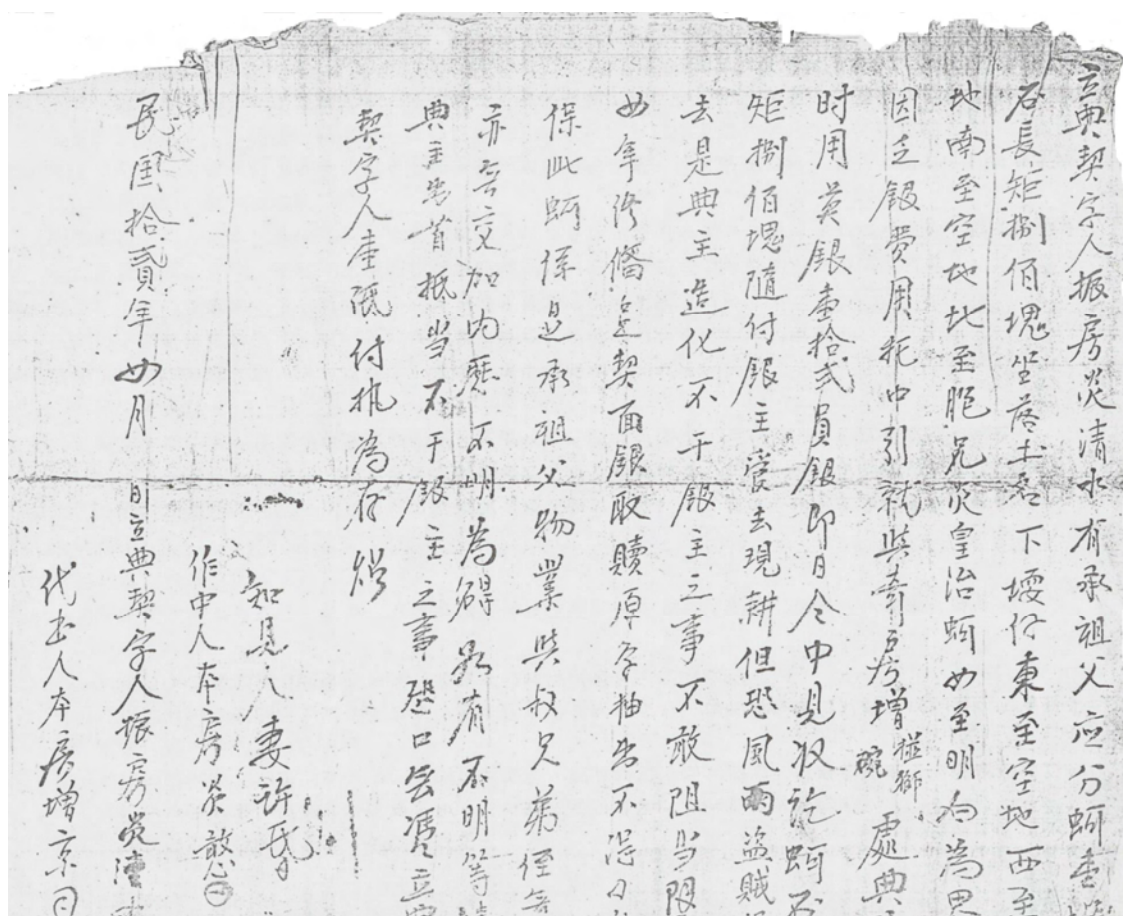 立典契字人振房炎清水有承祖父应分蚵壹
石長矩捌佰塊坐落土名下塭仔東至空地西至
地南至空地北至胞兄炎皇治蚵四至明白為界
因乏銀費用托中引就與房增碰獅處典
时用英銀壹拾弍員銀即日仝中見收訖蚵石
矩捌佰塊隨付銀主受去現耕但恐風雨盜賊
去是典主造化不干銀主之事不敢阻当限
四年終備足契面銀取贖原字抽出不得刁
保此蚵係是承祖父物業與叔兄弟侄無
亦無交加內歷不明為碍如有不明等情
典主出首抵当不干銀主之事恐口無憑立典
契字人壹紙付执為存炤
知見人妻許氏
作中人本房炎憨
民国拾貳年四月 日立典契字人振房炎清水
代书人本房增京